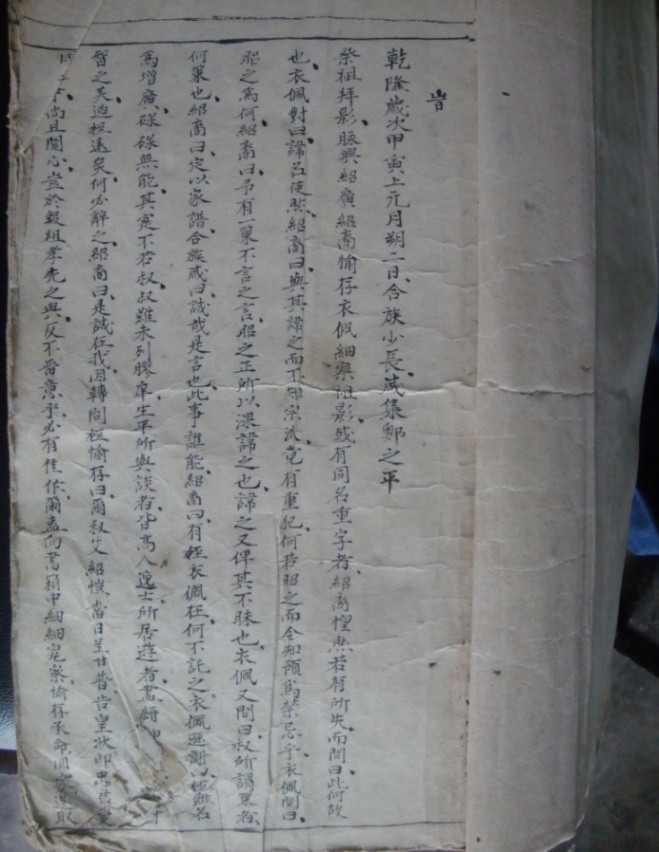 旹
乾隆歲次甲寅上元月朔二日合族少長咸集鄭之平
祭祖拜影脈興紹廣紹裔愉存衣佩細察祖影或有同名重字者紹裔惶然若有所失而問曰此何故
也衣佩對曰諱名使然紹裔曰與其諱之而不知宗派竟有重犯何若昭之而令知預為禁忌乎衣佩問曰
昭之為何紹裔曰吊有一策不言之言昭之正所以深諱之也諱之又俾其不昧也衣佩又問曰叔所謂策者
何策也紹裔曰定以家譜合族咸曰誠哉是言也此事誰能紹裔曰有姪衣佩在何不託之衣佩遜謝曰姪雖名
為增廣碌碌無能其實不若叔叔雖未列膠庠生平所與談者皆高人逸士所居遊者
智之美迨祖遠矣何必辭之紹裔曰是誠在我因轉問姪愉存曰爾叔父紹愷當日
尚且關心豈於報祖孝先之典反不留意乎必有佳作爾盍向書箱中細細寃察愉存承命